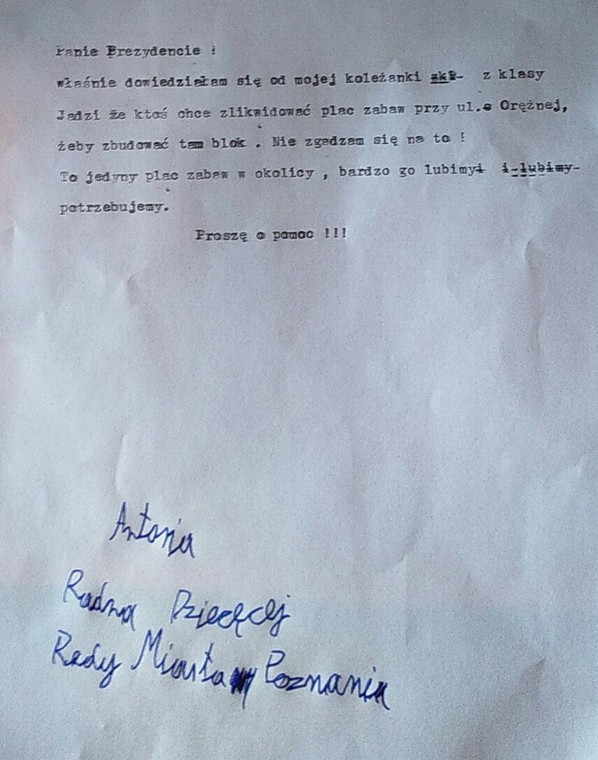 Panie Prezydencie !
właśnie dowiedziałam się od mojej koleżanki z klasy
Jadzi że ktoś chce zlikwidować plac zabaw przy ul. Orężnej,
żeby zbudować tam blok . Nie zgadzam się na to !
To jedyny plac zabaw w okolicy , bardzo go lubimy i lubimy
potrzebujemy.
Proszę o pomoc !!!
Antonia
Radna Dziecęcej
Rady Miasta Poznania